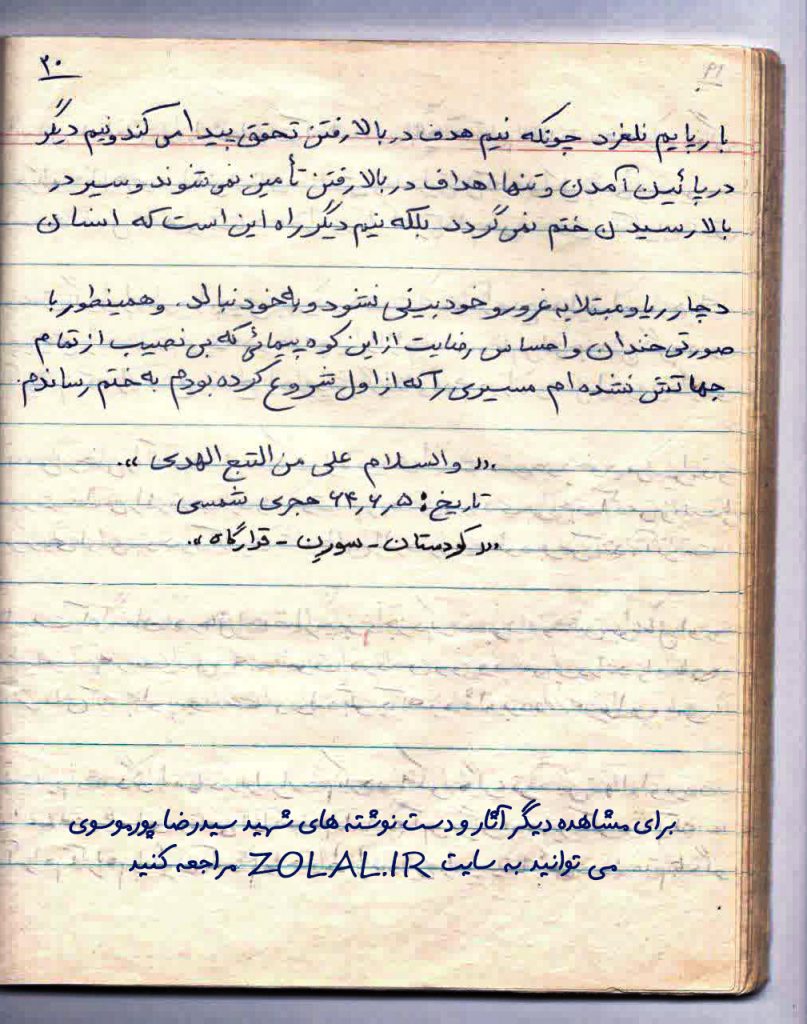 ۳۰
بار پایم نلغزد چونکه نیم هدف در بالا رفتن تحقق پیدا می کند و نیم دیگر
در پائین آمدن و تنها اهداف در بالا رفتن تأمین نمی شوند و سیر در
بالا رسیدن ختم نمی گردد بلکه نیم دیگر راه این است که انسان
دچار ریا و مبتلا به غرور و خودبینی نشود و به خود نبالد. و همینطور با
صورتی خندان و احساس رضایت از این کوه پیمائی که بی نصیب از تمام
جهاتش نشده ام مسیری را که از اول شروع کرده بودم به ختم رساندم.
«والسلام علی من التبع الهدی».
تاریخ: ۶۴٫۶٫۵ هجری شمسی
«کردستان - سورین - قرارگاه».
برای مشاهده دیگر آثار و دست نوشته های شهید سیدرضا پورموسوی
می توانید به سایت ZOLAL.IR مراجعه کنید